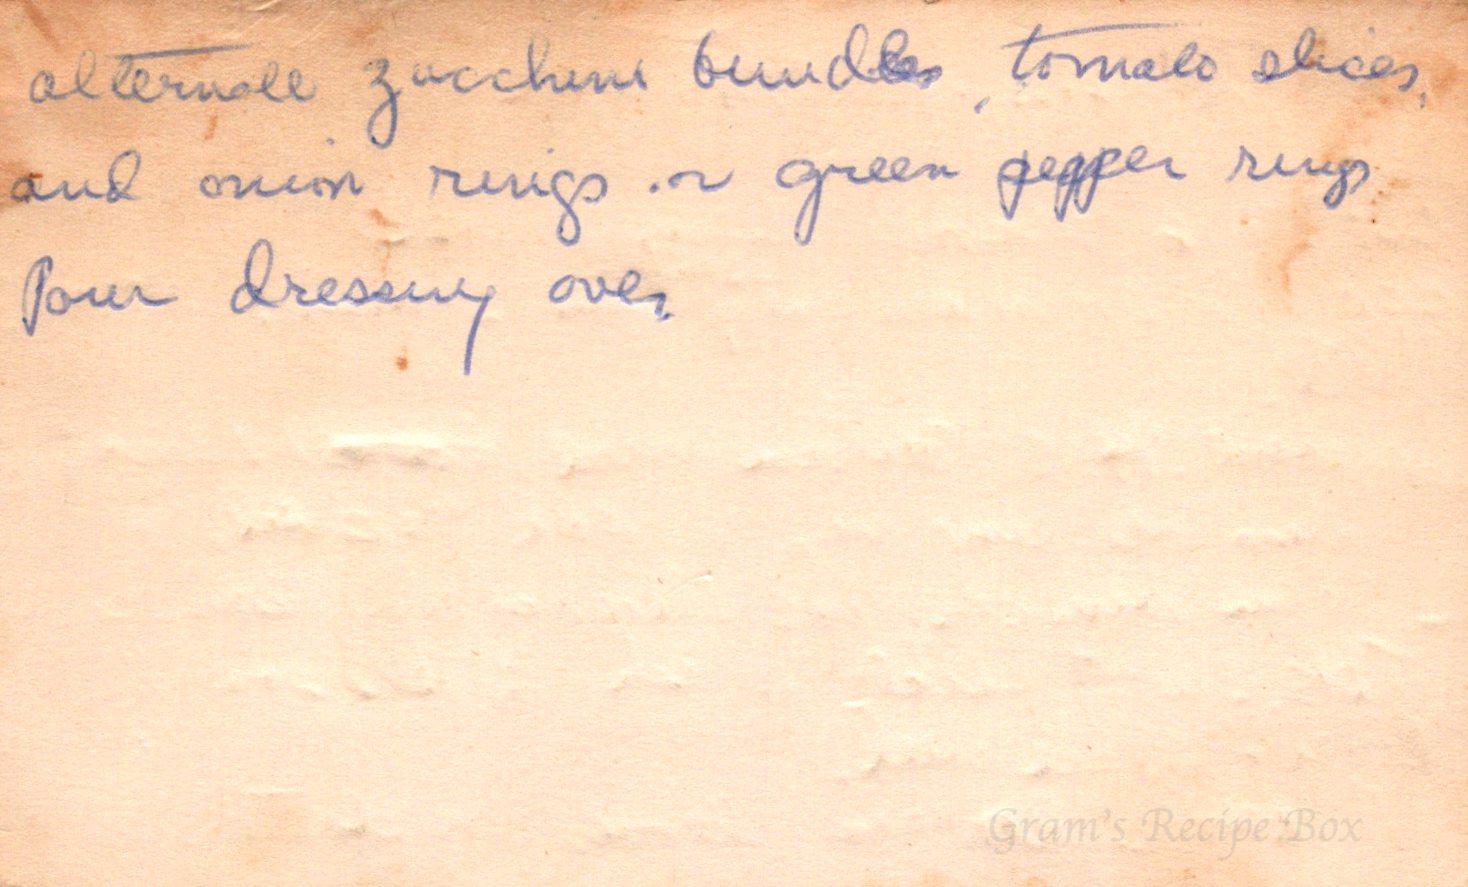 alternate zucchini bundles, tomato slices,
and onion rings or green pepper rings
Pour dressing over.
Gram's Recipe Box